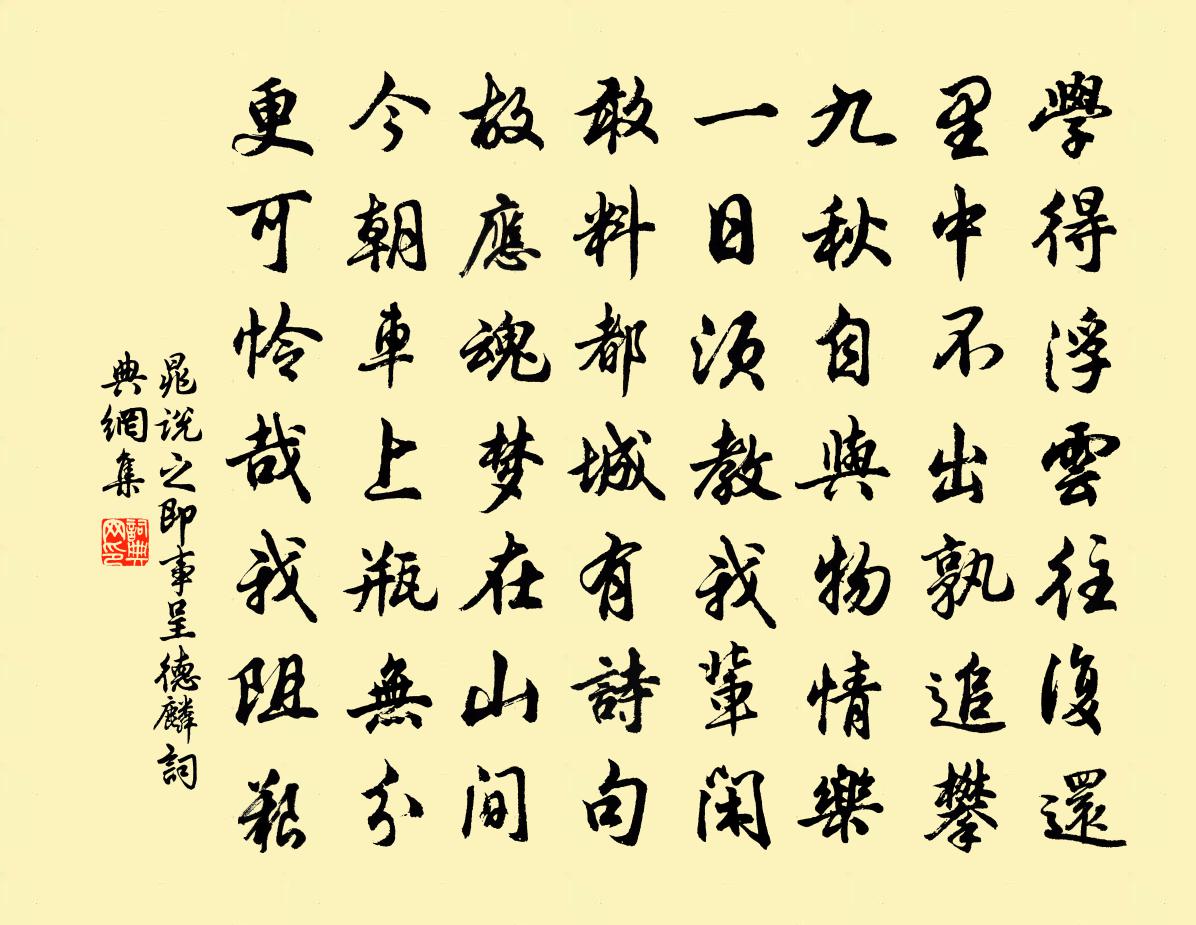 學得浮雲往復還
里中不出孰追攀
九秋自與物情樂
一日須教我輩閑
敢料都城有詩句
故應魂梦在山间
今朝車上瓶無分
更可怜哉我阻艱
晁说之即事呈德麟詞
典網集
詞典
网印